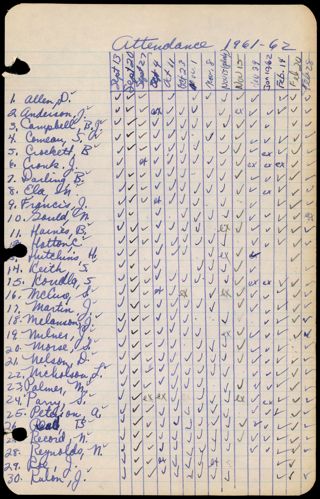 Attendance 1961-62
Sept 13 Sept 20 Sept 27 Oct 4 Oct 11 Oct 25 Nov 1 Nov. 8 Nov 15 Nov 29 Jan 10, 62 Feb. 14 Feb 20 Feb 28
1. Allen, D.
2. Anderson, J.
3. Campbell, B.J.
4. Comeau, S.
5. Crockett, B
6. Cronk, J.
7. Darling, B.
8. Ela, M
9. Francis, J.
10. Gould, M
11. Haines, B.
12. Hatton, C.
Hutchins, H.
14. Keith, S
15. Koudla, S
16. McLeug, S.
17. Martin, J.
18. Melanson, J.
19. Milner, J.
20. Morse, L.
21. Nelson, D.
22. Nicholson, L.
23. Palmer, M.
24. Parry, S.
25. Peterson, A.
26. B.
Record, N.
28. Reynolds, N.
29. Roy, J.
30. Rulon, J.